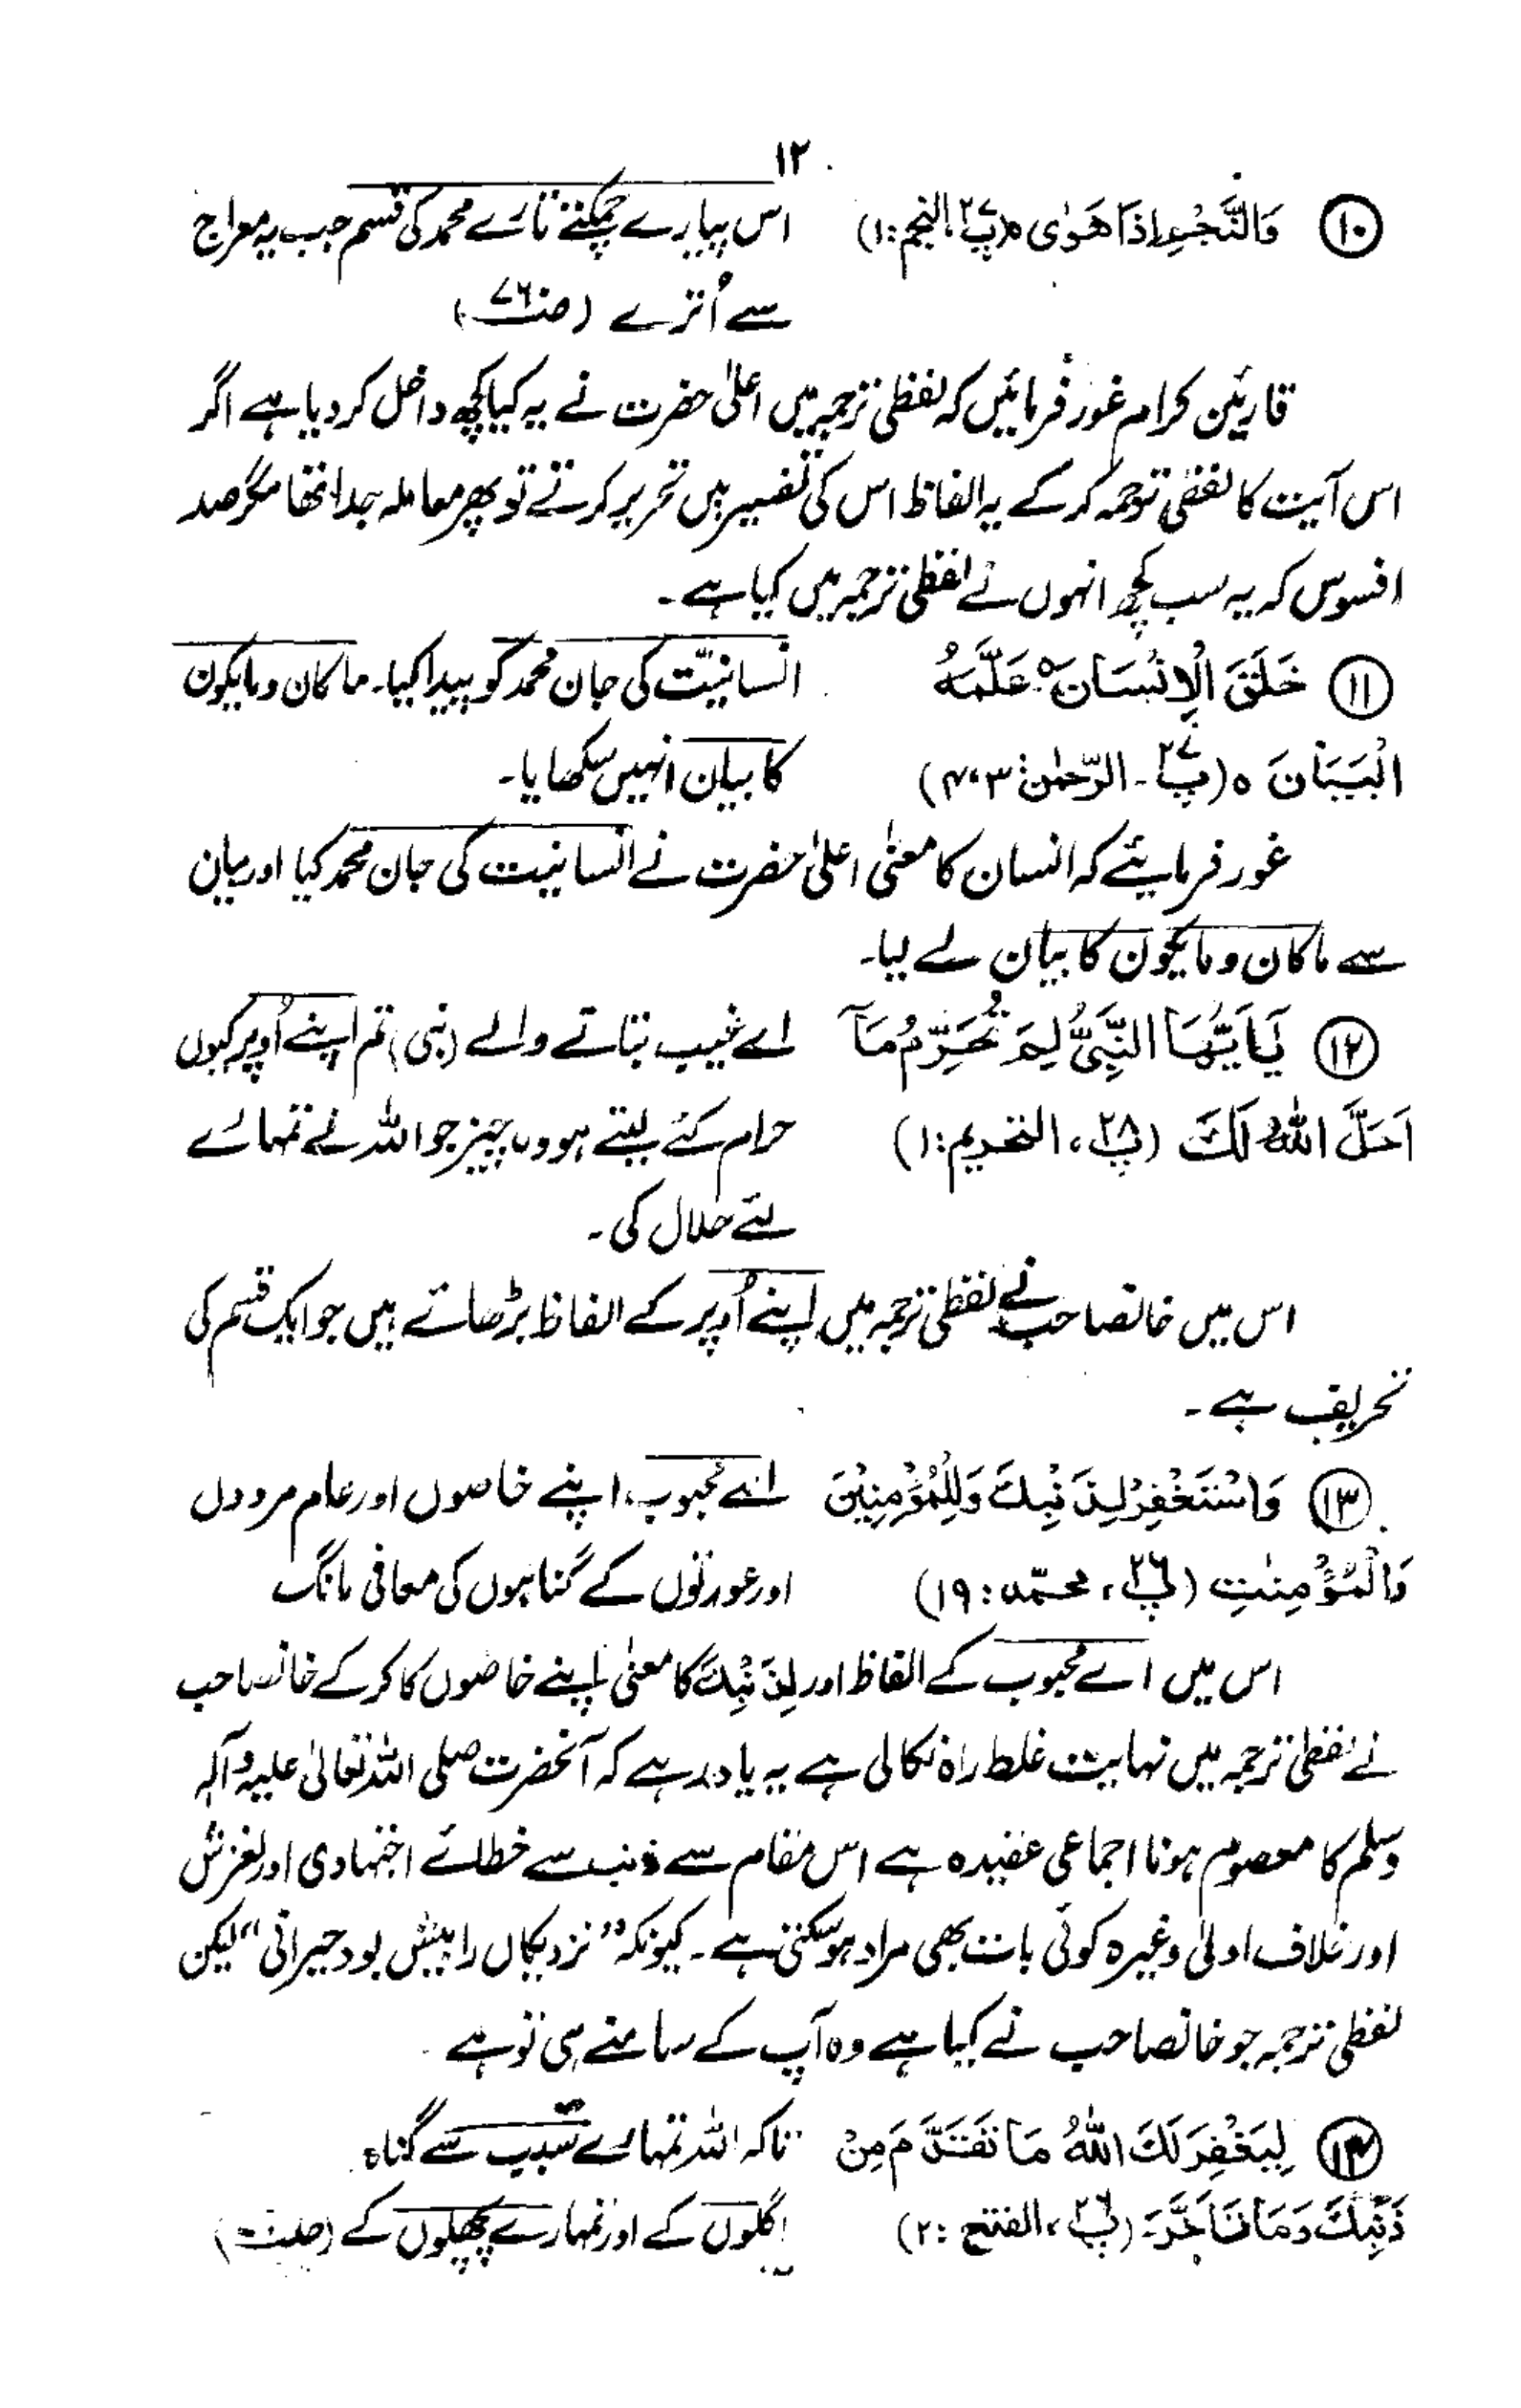 ۱۲
⑩ وَالنَّجْمِ اِذَا هَوٰی ہ (پ۲۷ النجم:۱) اس پیارے چمکتے تارے محمد کی قسم جب یہ معراج
سے اُترے
قارئین کرام غور فرمائیں کہ لفظی ترجمہ میں اعلیٰ حضرت نے یہ کیا کچھ داخل کر دیا ہے اگر
اس آیت کا لفظی ترجمہ کر کے یہ الفاظ اس کی تفسیر میں تحریر کرتے تو پھر معاملہ جدا تھا مگر صد
افسوس کہ یہ سب کچھ انہوں نے لفظی ترجمہ میں کیا ہے۔
⑪ خَلَقَ الْاِنْسَانَ ہ عَلَّمَهُ انسانیّت کی جان محمد کو پیدا کیا۔ ماکان ومایکون
الْبَیَانَ ہ (پ۲۷۔ الرّحمٰن: ۳،۴) کا بیان انہیں سکھایا۔
غور فرمایئے کہ انسان کا معنٰی اعلیٰ حضرت نے انسانیت کی جان محمد کیا اور بیان
سے ماکان ومایکون کا بیان لے لیا۔
⑫ یٰۤاَیُّهَا النَّبِیُّ لِمَ تُحَرِّمُ مَاۤ اے غیب بتاتے والے (نبی) تم اپنے اُوپر کیوں
اَحَلَّ اللّٰهُ لَکَ (پ۲۸، التحریم:۱) حرام کئے لیتے ہو وہ چیز جو اللہ نے تمہارے
لئے حلال کی۔
اس میں خانصاحب نے لفظی ترجمہ میں اپنے اُوپر کے الفاظ بڑھاتے ہیں جو ایک قسم کی
تحریف ہے۔
⑬ وَاسْتَغْفِرْ لِذَنْۢبِکَ وَلِلْمُؤْمِنِیْنَ اے محبوب، اپنے خاصوں اور عام مردوں
وَالْمُؤْمِنٰتِ (پ۲۶، محمّد: ۱۹) اور عورتوں کے گناہوں کی معافی مانگ
اس میں اے محبوب کے الفاظ اور لِذَنْۢبِکَ کا معنٰی اپنے خاصوں کا کر کے خانصاحب
نے لفظی ترجمہ میں نہایت غلط راہ نکالی ہے یہ یاد رہے کہ آنحضرت صلی اللہ تعالیٰ علیہ وآلہ
وسلم کا معصوم ہونا اجماعی عقیدہ ہے اس مقام سے ذنب سے خطائے اجتہادی اور لغزش
اور خلاف اولیٰ وغیرہ کوئی بات بھی مراد ہو سکتی ہے۔ کیونکہ ”نزدیکاں را بیش بود حیرانی“ لیکن
لفظی ترجمہ جو خانصاحب نے کیا ہے وہ آپ کے سامنے ہی تو ہے
⑭ لِیَغْفِرَ لَکَ اللّٰهُ مَا تَقَدَّمَ مِنْ تاکہ اللہ تمہارے سبب سے گناہ
ذَنْۢبِکَ وَمَا تَاَخَّرَ (پ۲۶، الفتح :۲) اگلوں کے اور تمہارے پچھلوں کے